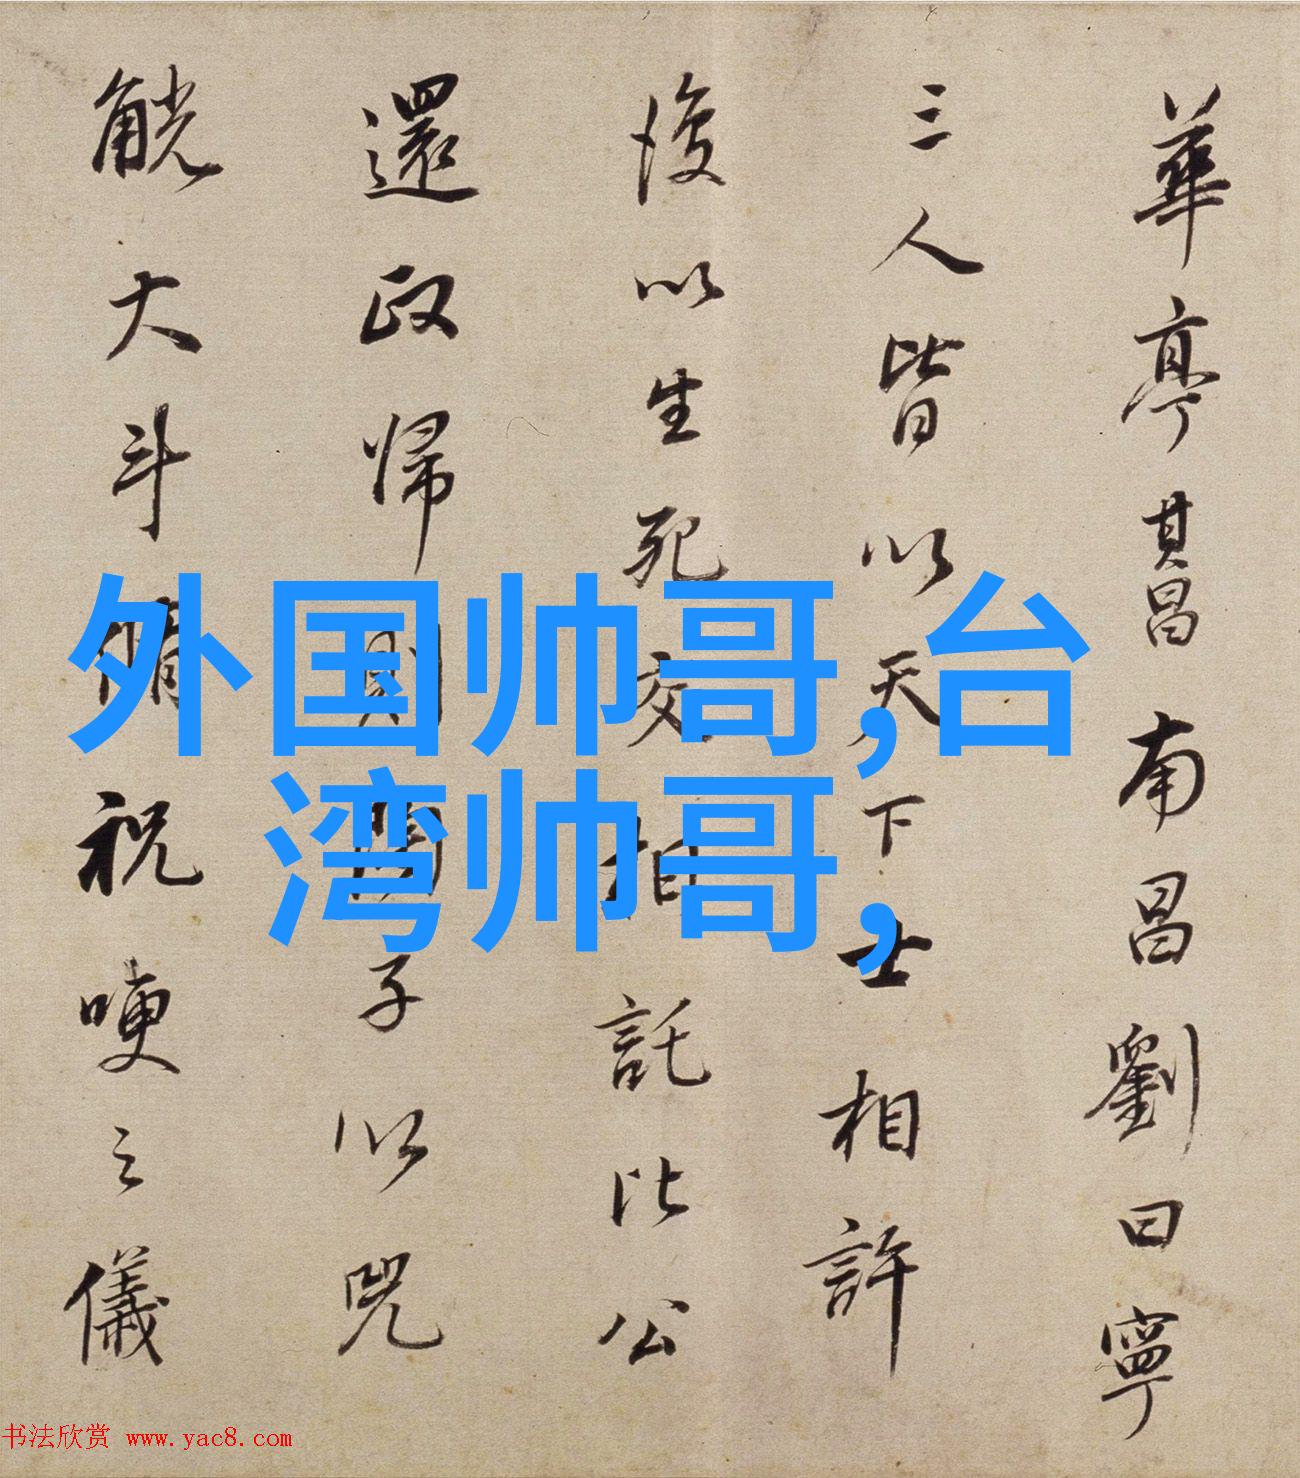 華亭其昌南昌劉曰寧
三人皆以天下士相許
後以生死交相託比公
還政帰則子以兕
觥大斗脩祝哽之儀
外国帅哥,台
湾帅哥,
书法欣赏 www.yac8.com